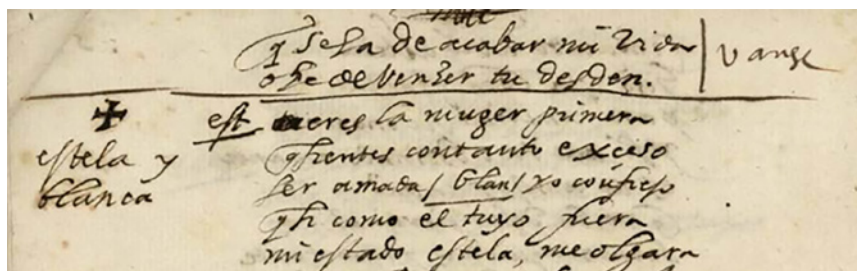 q̃ se ha de acabar mi vida
o he de venzer tu desden.
vanse
est eres la muger primera
estela y
blanca
q̃ sientes con tanto exceso
ser amada / blan / yo confieso
q̃ si como el tuyo fuera
mi estado estela, me olgara